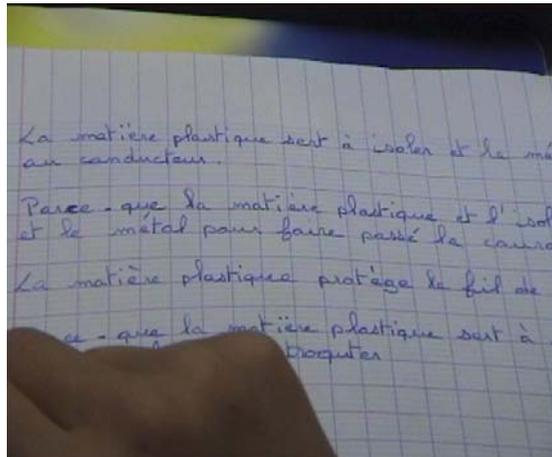 La matière plastique sert à isoler et le mé
au conducteur.
Parce-que la matière plastique et l'isol
et le métal pour faire passé le coura
La matière plastique protège le fil de
ce-que la matière plastique sert à